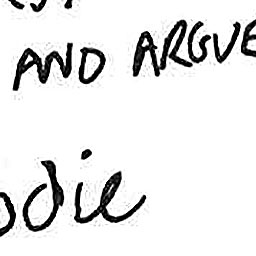 AND ARGUE
odie